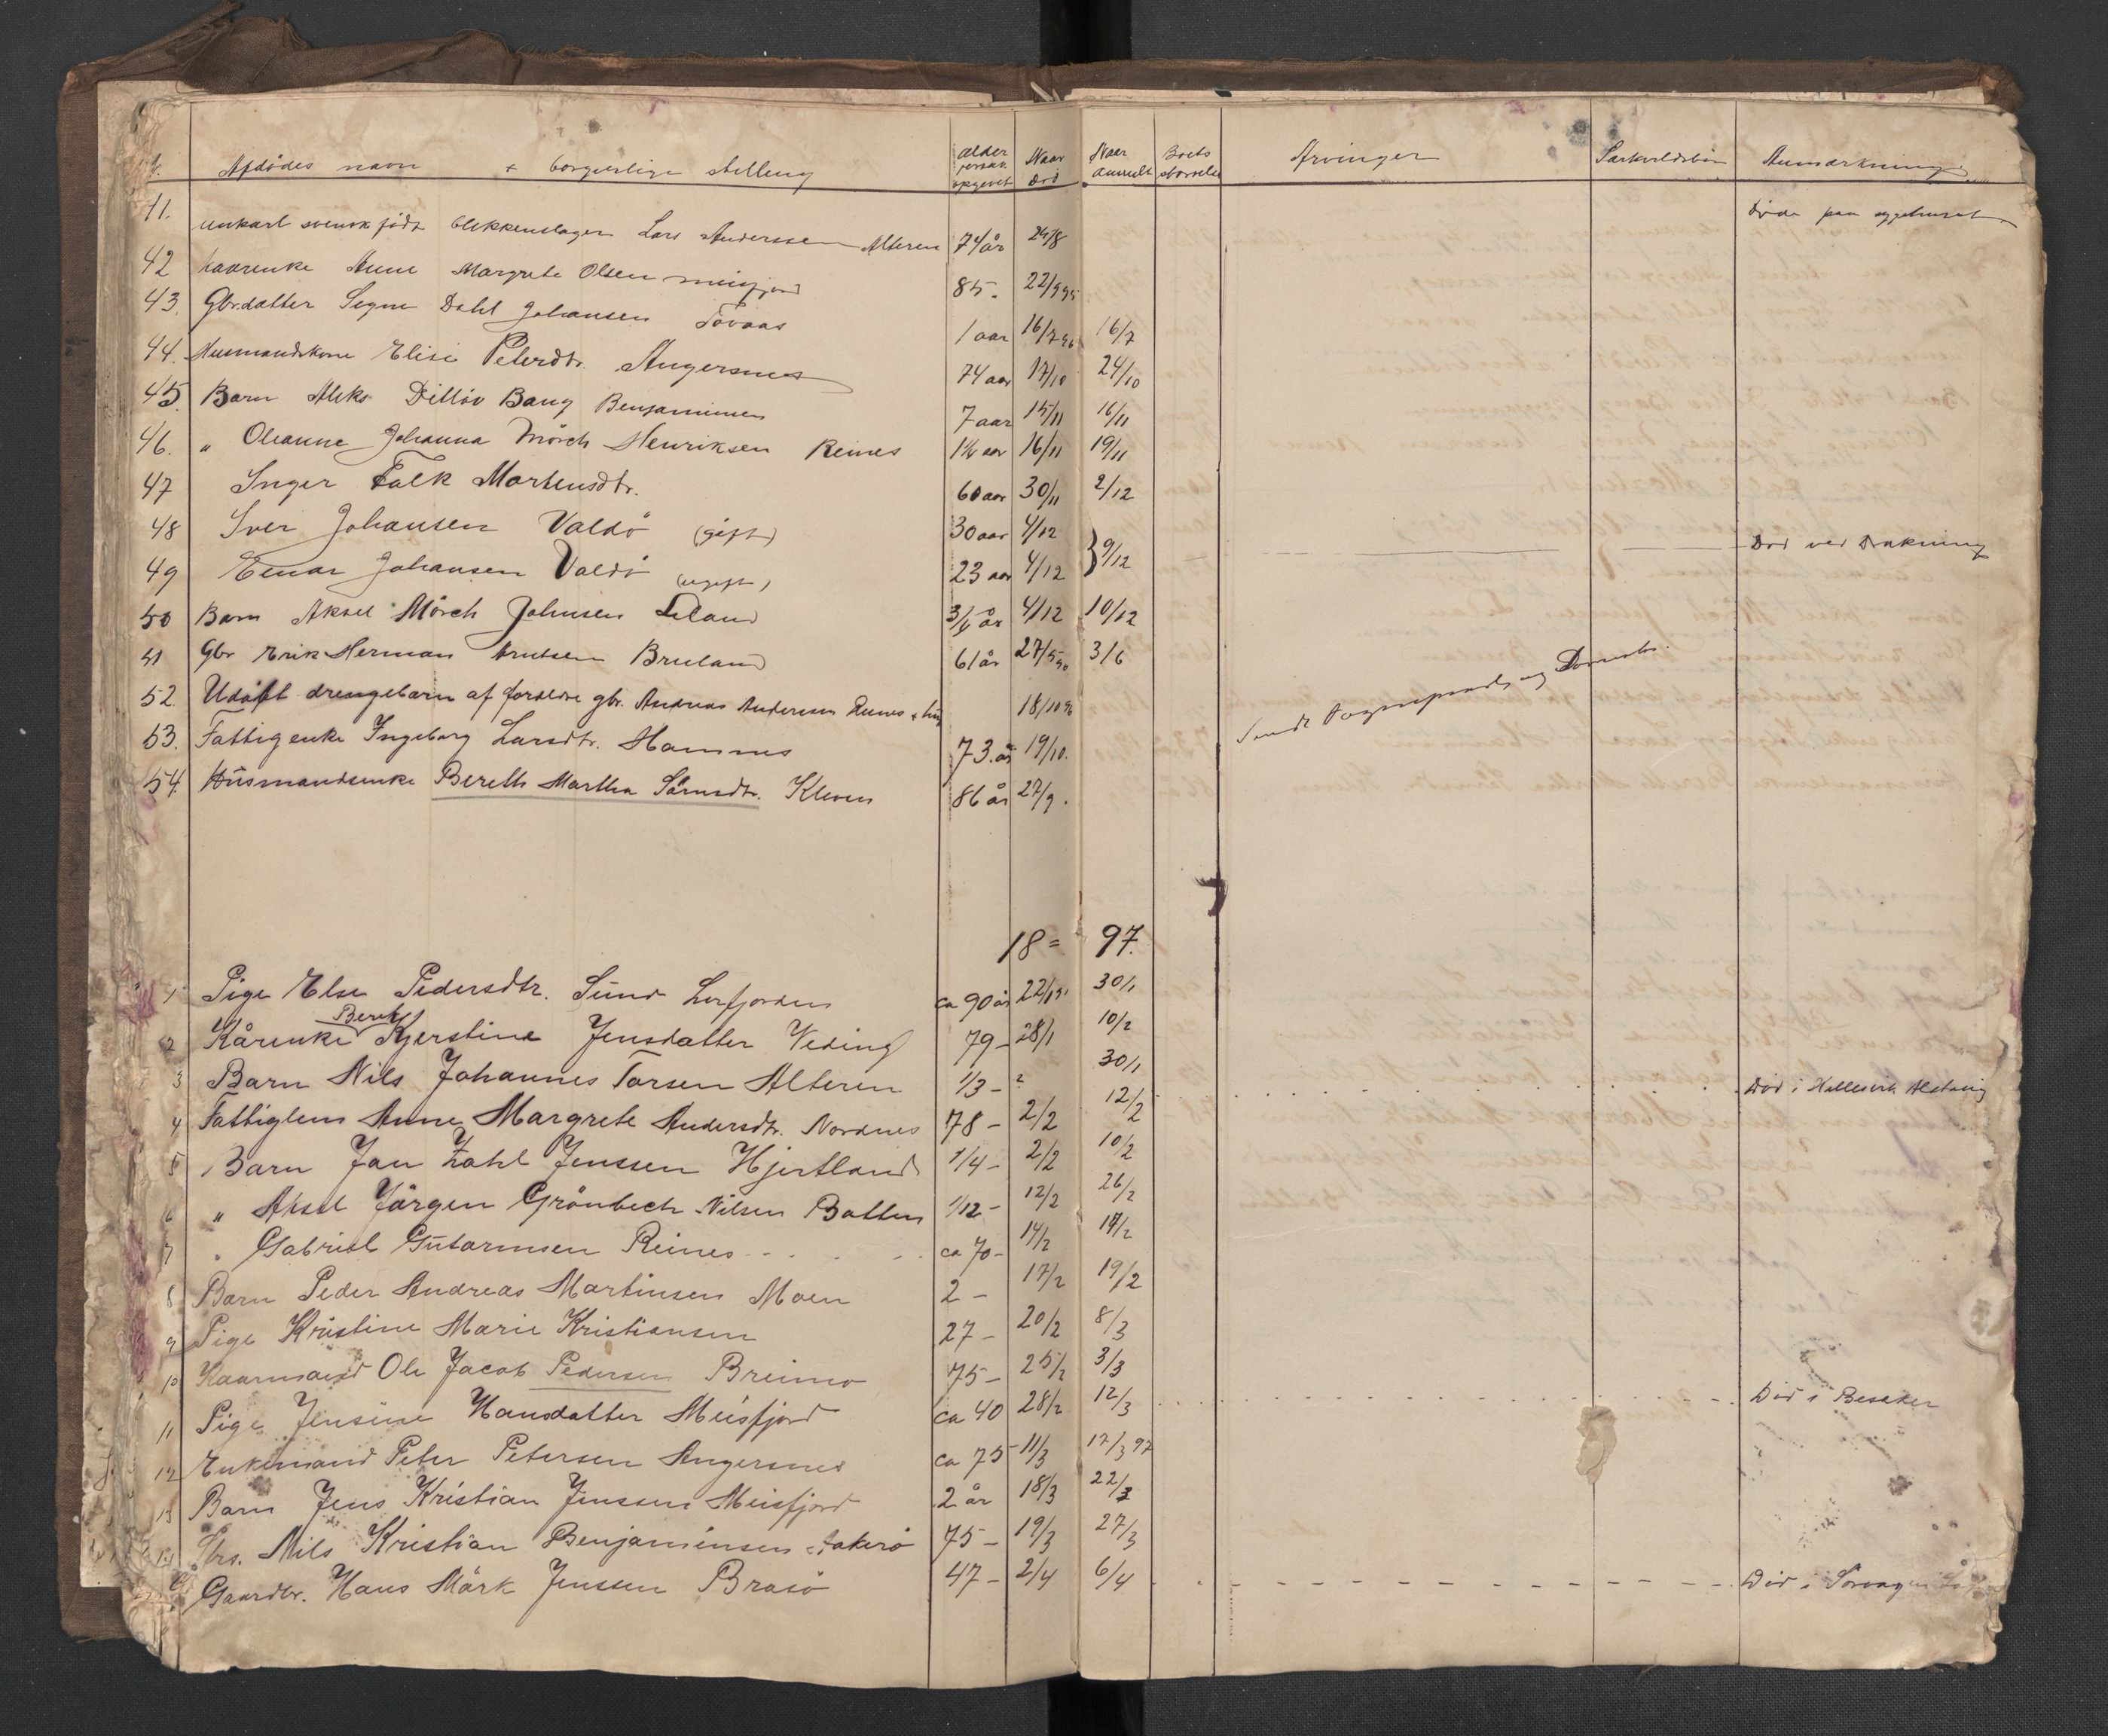 Afdødes navn + borgerlige stilling Alder Naar død Naar anmeldt Boets størrelse Arvinger Særkuldsbørn Anmærkning
41. svensk født blikkenslager Lars Anderssen Alteren 74 år 24/8 Døde paa sygehuset
42 Anne Margrete Olsen Meisfjord 85. 22/9 95
43. Gbrdatter Signe Dahl Johansen Tovaas 1 aar 16/7 96 16/7
44. Husmandskone Elise Petersdtr. Angersnes 74 aar 17/10 24/10
45. Barn Ditløv Bang Benjaminsen 7 aar 15/11 16/11
46. " Oleanne Johanna Mörch Henriksen Reines 1¼ aar 16/11 19/11
47 Inger Falk Mortensdtr. 60 aar 30/11 2/12
48 Iver Johansen Valdö (gift) 30 aar 4/12
49 Einar Johansen Valdö (ugift) 23 aar 4/12 } 9/12 Død ved Drukning
50 Barn Aksel Mörch Johnsen Leland 3/4 år 4/12 10/12
51 Gbr Erik Herman Knutsen Bruland 61 år 27/5 96 3/6
52. Udöbt drengebarn af forældre gbr. Andreas Andersen Reines + 18/10 96
53. Fattigenke Ingeborg Larsdtr. Hamnes 73. år 19/10.
54. Husmandsenke Bereth Martha Sörensdtr. Kleven 86 år 27/9.
18 = 97.
1 Pige Else Pedersdtr. Sund Leirfjorden ca 90 år 22/1 30/1
Berit
2 Kårenke Kjerstine Jensdatter Veding 79 – 28/1 10/2
3 Barn Nils Johannes Torsen Alteren 1/3 – ? 30/1 Död i Hellesvik Alstahoug
4 Fattiglem Anne Margrete Andersdtr. Nordnes 78 – 2/2 12/2
5 Barn Jan Zahl Jenssen Hjertland 1/4 – 2/2 10/2
6 " Aksel Jörgen Grönbech Nilsen Botten 1/12 – 12/2 26/2
7 " Gabriel Gutormsen Reines ca 70 – 14/2 17/2
8 Barn Peder Andreas Martinsen Moen 2 – 17/2 19/2
9 Pige Kristine Marie Kristiansen 27 – 20/2 8/3
10 Kaarmand Ole Jacob Pedersen Breimo 75 – 25/2 3/3
11 Pige Jensine Hansdatter Meisfjord ca 40 28/2 12/3 Död i Besaker
12 Enkemand Peter Petersen Angersnes ca 75 – 11/3 17/3 97
13 Barn Jens Kristian Jenssen Meisfjord 2 år 18/3 22/3
14 Nils Kristian Benjaminsen 75 – 19/3 27/3
Gaardbr. Hans Mörk Jenssen Brasö 47 – 2/4 6/4 Död i Sörvaagen